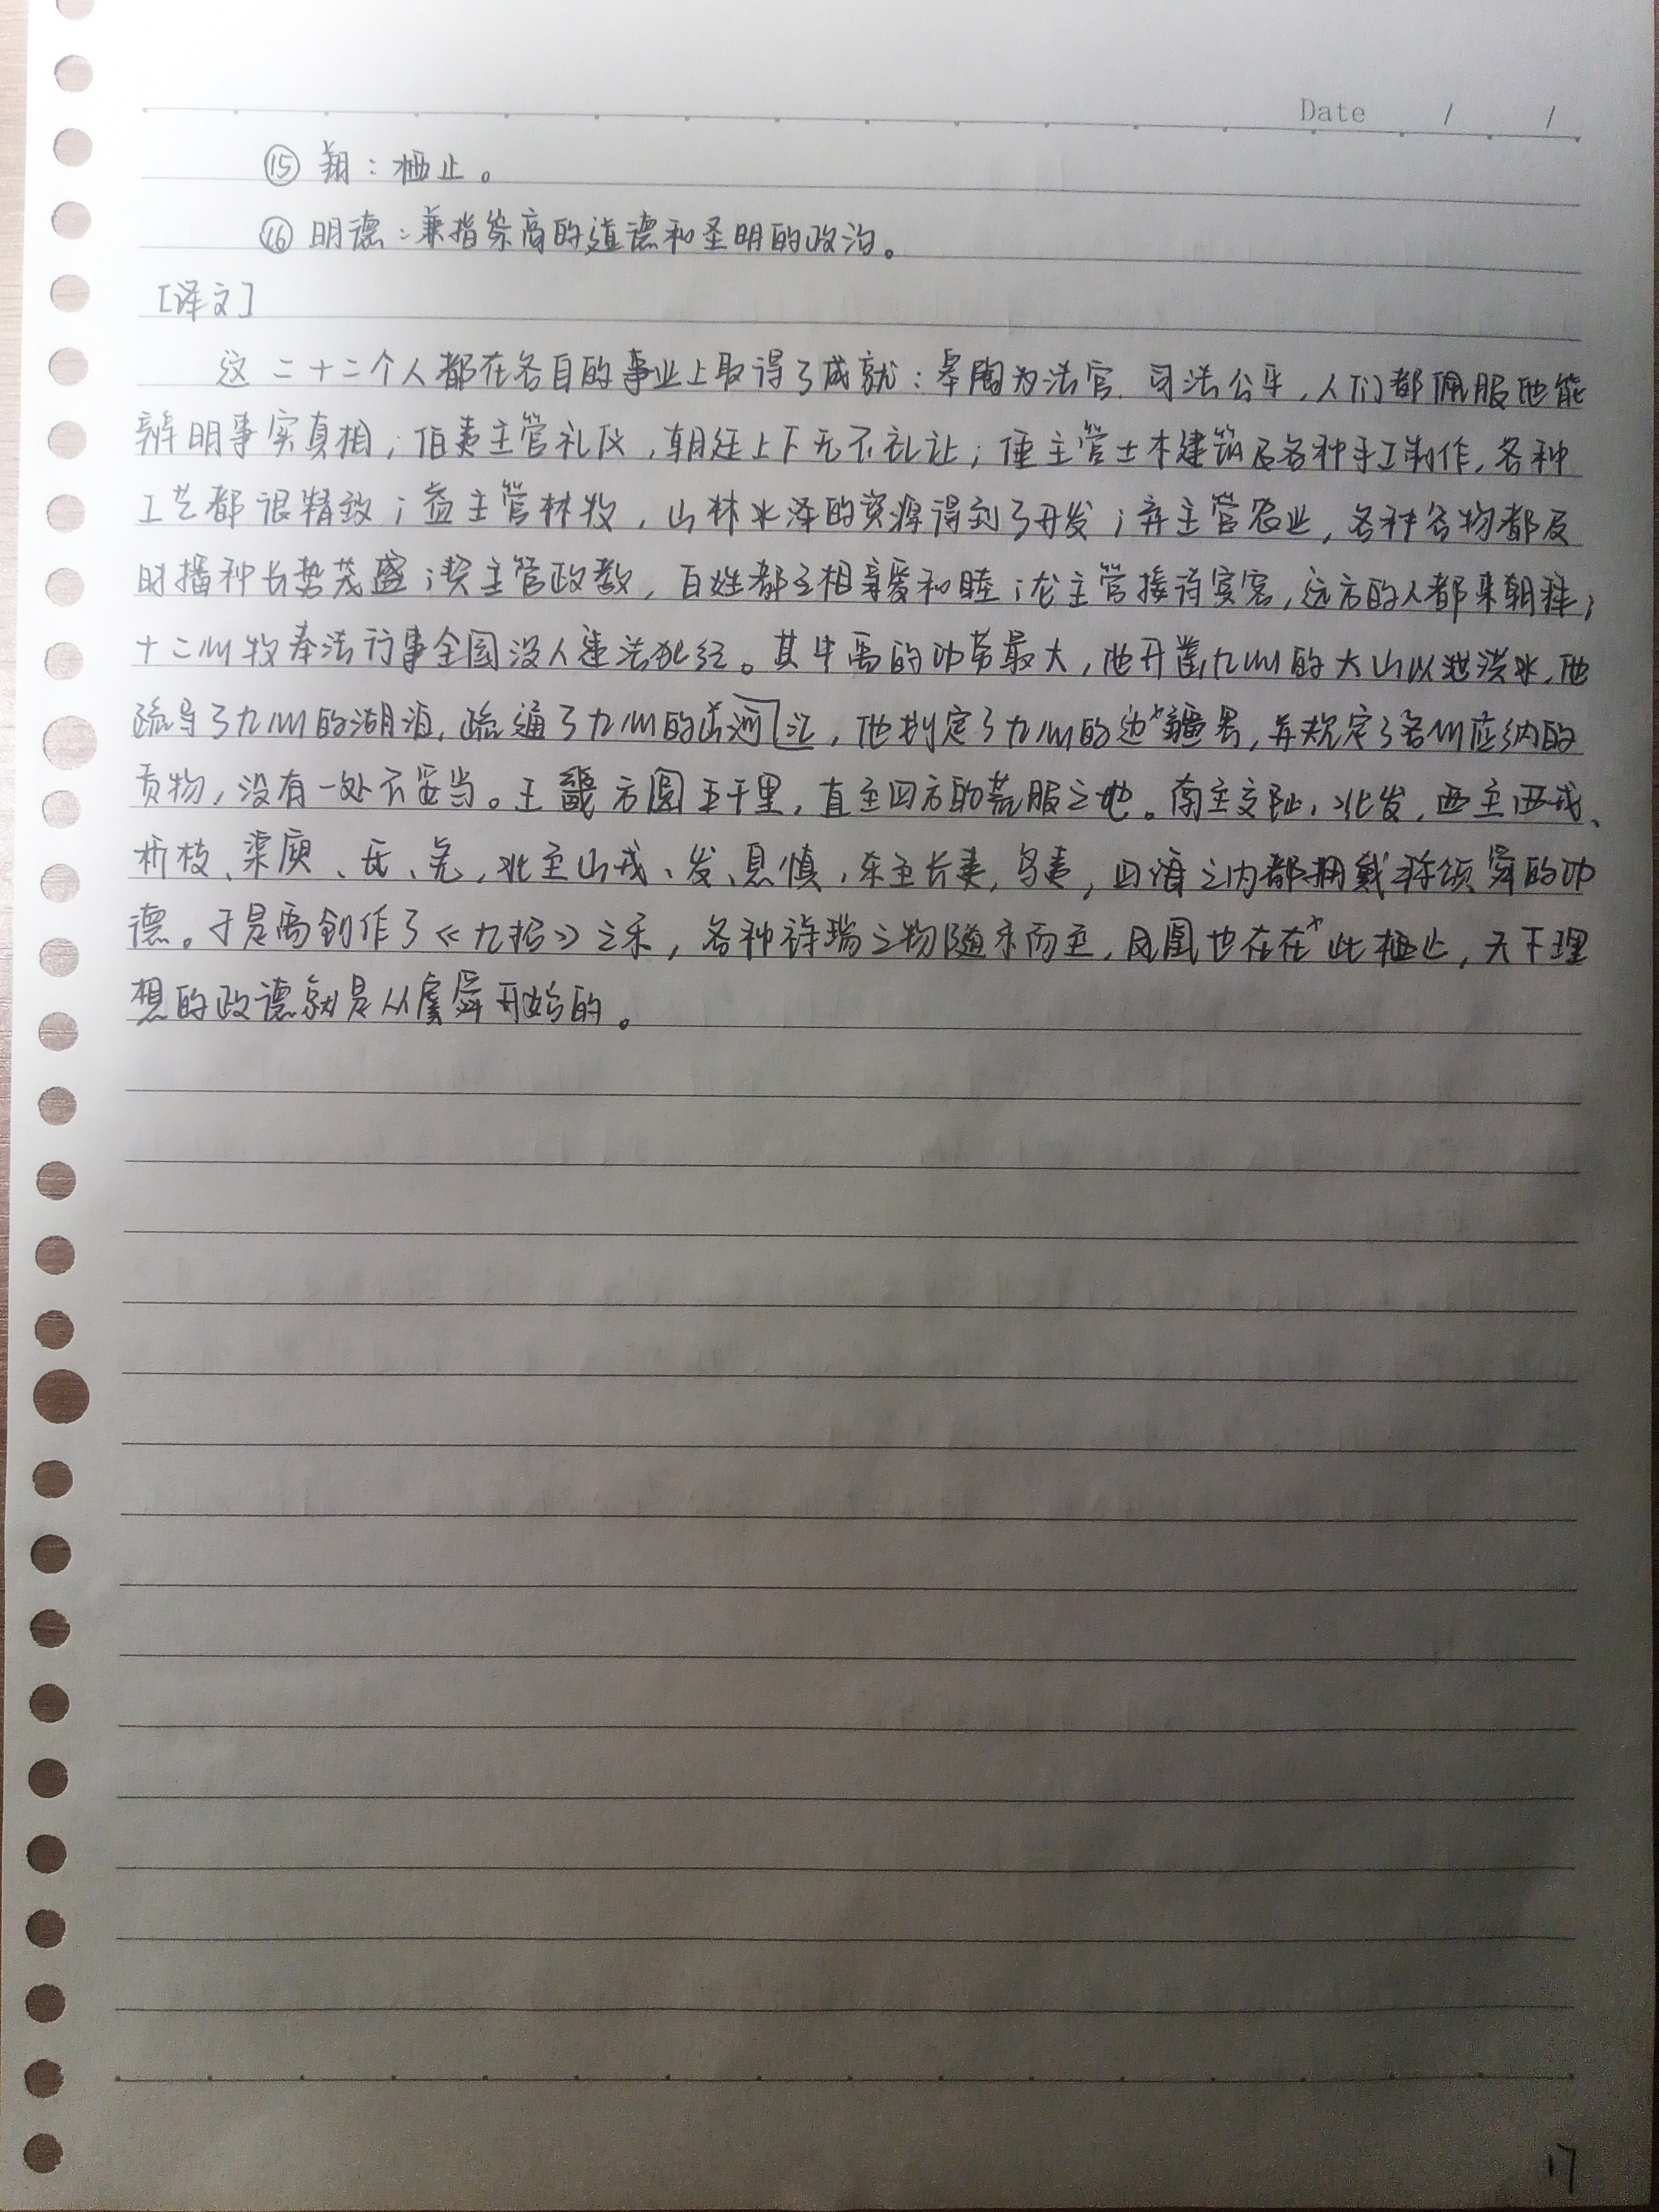 Date / /
⑮ 翔：栖止。
⑯ 明德：兼指崇高的道德和圣明的政治。
[译文]
这二十二个人都在各自的事业上取得了成就：皋陶为法官，司法公平，人们都佩服他能
辨明事实真相；伯夷主管礼仪，朝廷上下无不礼让；倕主管土木建筑及各种手工制作，各种
工艺都很精致；益主管林牧，山林水泽的资源得到了开发；弃主管农业，各种谷物都及
时播种长势茂盛；契主管政教，百姓都互相亲爱和睦；龙主管接待宾客，远方的人都来朝拜；
十二州牧奉法行事全国没人违法犯纪。其中禹的功劳最大，他开凿九州的大山以泄洪水，他
疏导了九州的湖泊，疏通了九州的河江，他划定了九州的边疆界，并规定了各州应纳的
贡物，没有一处不妥当。王畿方圆五千里，直至四方的荒服之地。南至交阯、北发，西至西戎、
析枝、渠廋、氐、羌，北至山戎、发、息慎，东至长夷，鸟夷，四海之内都拥戴称颂舜的功
德。于是禹创作了《九招》之乐，各种祥瑞之物随乐而至，凤凰也在在此栖止，天下理
想的政德就是从虞舜开始的。
17